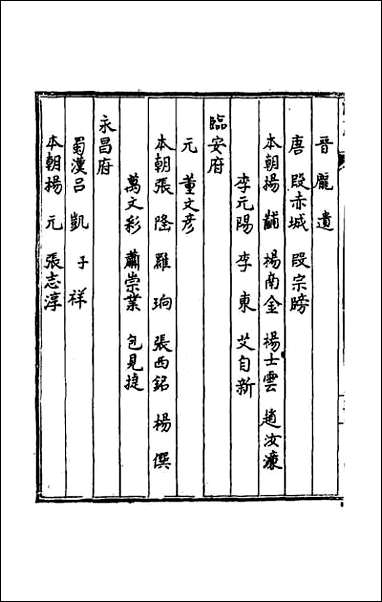 晉 龐遺
唐 段赤城 段宗牓
本朝楊黼 楊南金 楊士雲 趙汝濂
李元陽 李東 艾自新
臨安府
元 董文彥
本朝張隆 羅珦 張西銘 楊僎
萬文彩 蕭崇業 包見捷
永昌府
蜀漢呂凱 子祥
本朝楊元 張志淳